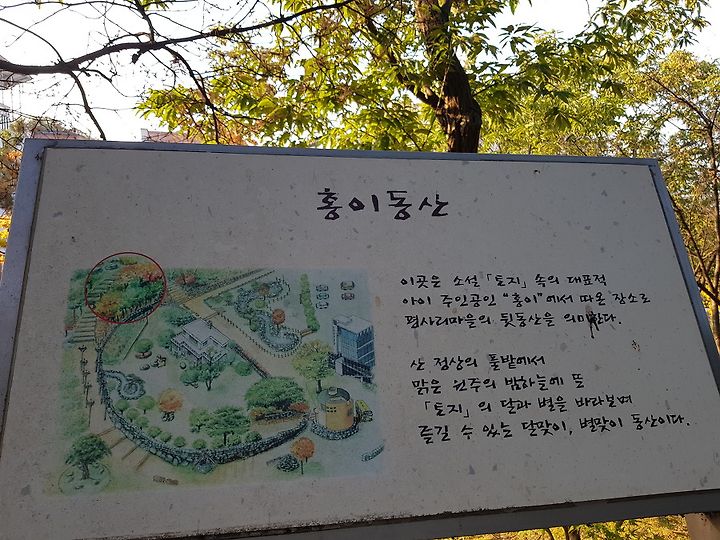 홍이동산
이곳은 소설 「토지」 속의 대표적
아이 주인공인 "홍이"에서 따온 장소로
평사리마을의 뒷동산을 의미한다.
산 정상의 풀밭에서
맑은 원주의 밤하늘에 뜬
「토지」의 달과 별을 바라보며
즐길 수 있는 달맞이, 별맞이 동산이다.